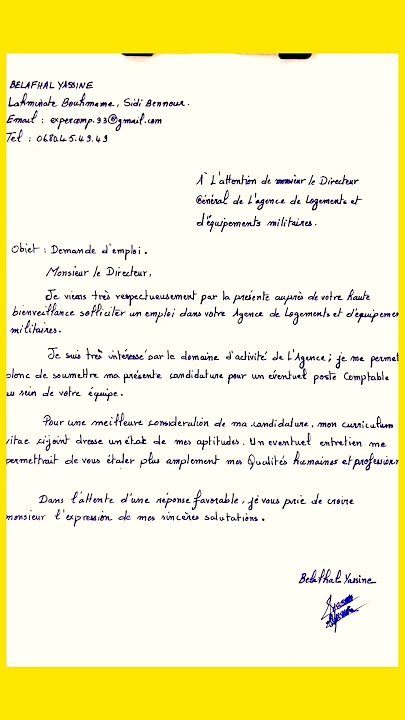 BELAFHAL YASSINE
Lahminate Bouhmame, Sidi Bennour.
Email : expercomp.93@gmail.com
Tel : 0680.45.49.49
À L'attention de monsieur le Directeur
Général de L'agence de Logements et
d'équipements militaires.
Objet : Demande d'emploi.
Monsieur le Directeur,
Je viens très respectueusement par la présente auprès de votre haute
bienveillance solliciter un emploi dans votre Agence de Logements et d'équipemen
militaires.
Je suis très intéressé par le domaine d'activité de L'Agence ; je me permet
donc de soumettre ma présente candidature pour un éventuel poste Comptable
au sein de votre équipe.
Pour une meilleure consideration de ma candidature, mon curriculum
vitae ci-joint dresse un état de mes aptitudes. Un eventuel entretien me
permettrait de vous étaler plus amplement mes Qualités humaines et profession
Dans l'attente d'une réponse favorable, je vous prie de croire
monsieur l'expression de mes sincères salutations.
Belafhal Yassine